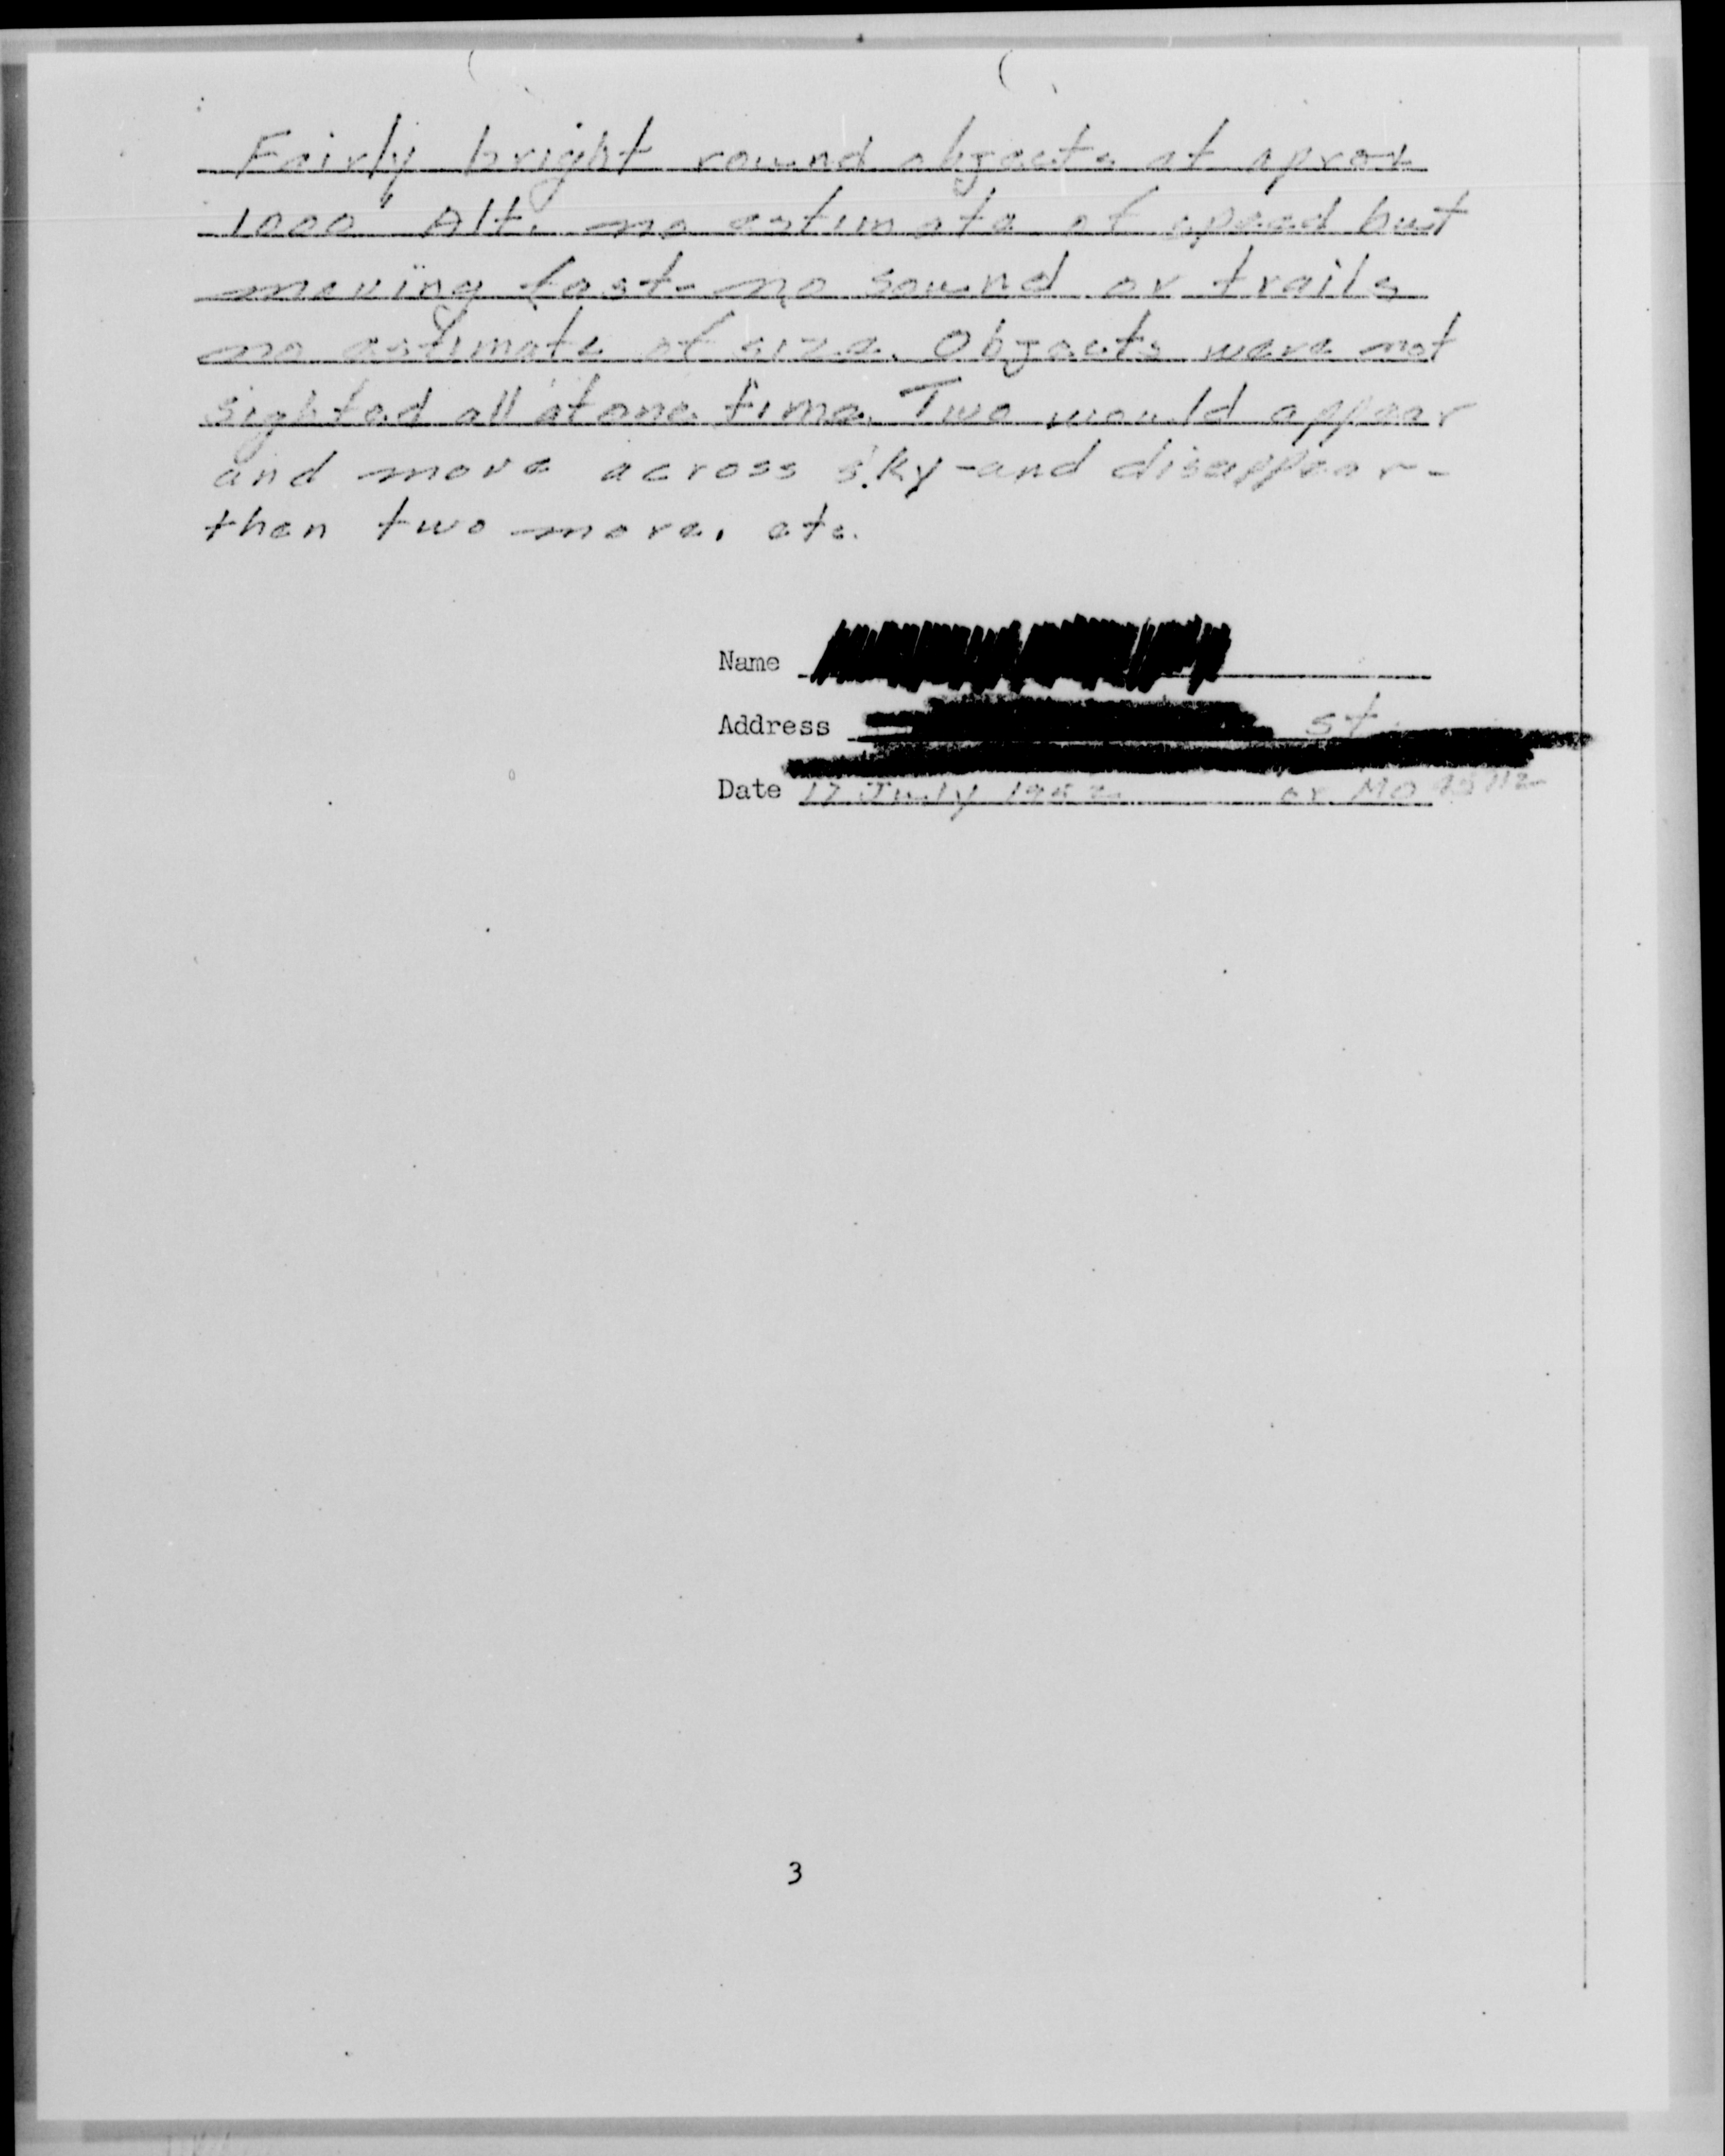 Fairly bright round objects at aprox
1000' Alt. no estimate of speed but
moving fast- no sound or trails
no estimate of size. Objects were not
sighted all at one time. Two would appear
and move across sky-and disappear-
then two more, etc.
Name
Address st
Date 17 July 1952 or MO
3